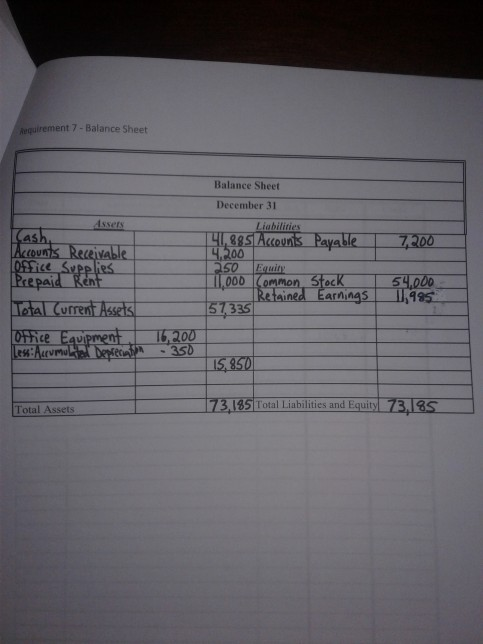 Requirement 7 - Balance Sheet
Balance Sheet
December 31
Assets Liabilities
Cash 41,885 Accounts Payable 7,200
Accounts Receivable 4,200
Office Supplies 250 Equity
Prepaid Rent 11,000 Common Stock 54,000
Retained Earnings 11,985
Total Current Assets 57,335
Office Equipment 16,200
Less: Accumulated Depreciation - 350
15,850
Total Assets 73,185 Total Liabilities and Equity 73,185